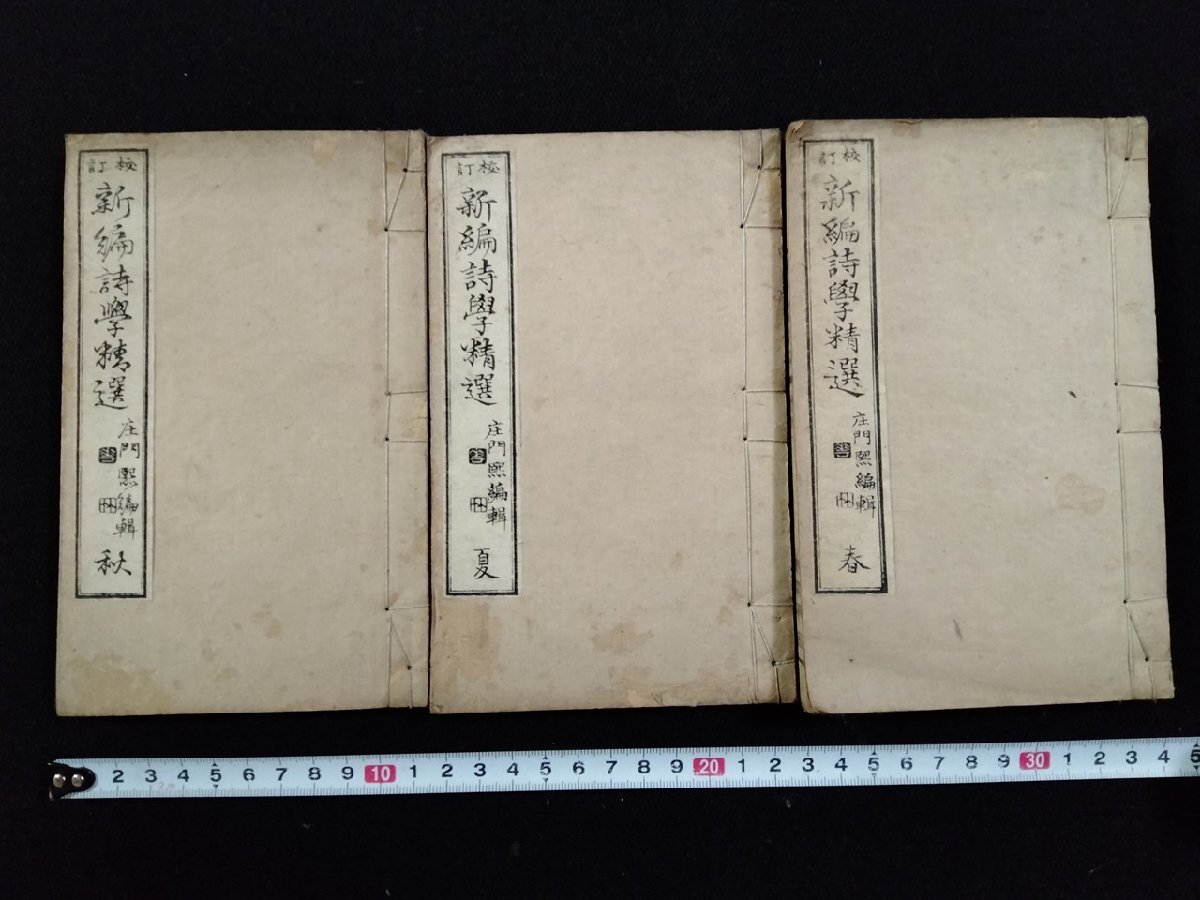 校訂
新編詩學精選
庄門熙編輯
秋
校訂
新編詩學精選
庄門熙編輯
夏
校訂
新編詩學精選
庄門熙編輯
春
2 3 4 5 6 7 8 9 10 1 2 3 4 5 6 7 8 9 20 1 2 3 4 5 6 7 8 9 30 1 2 3 4 5